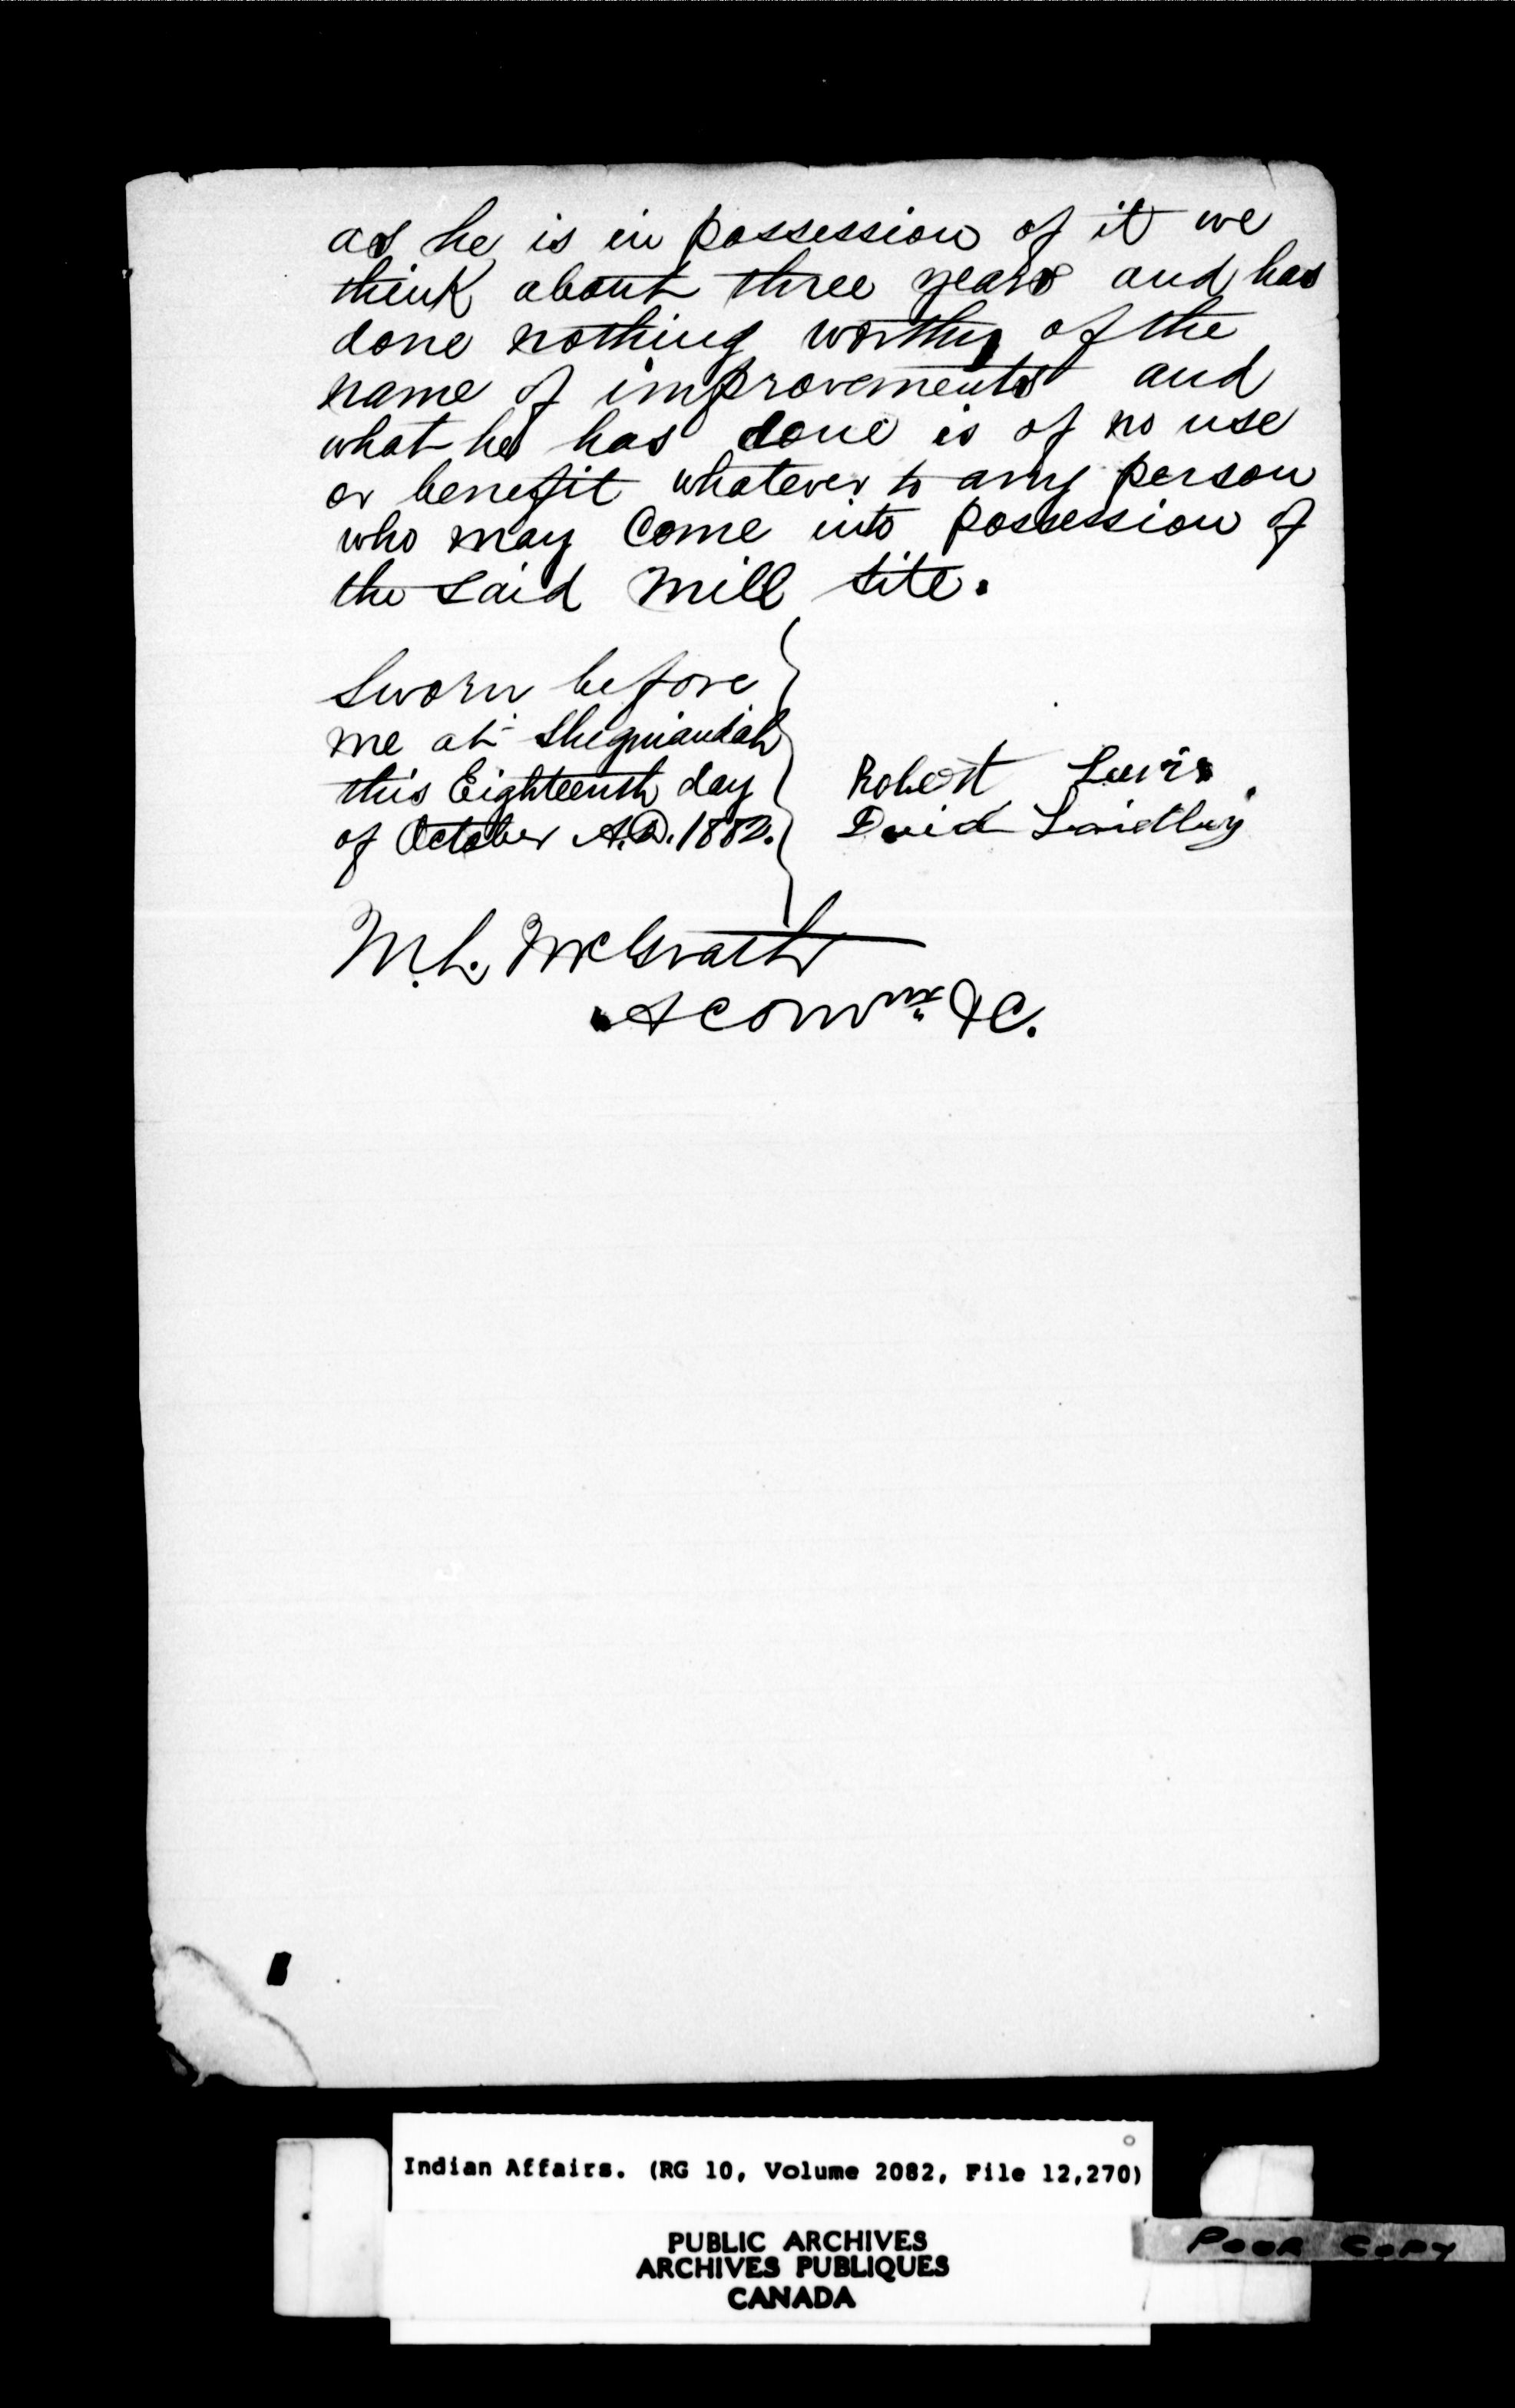 as he is in possession of it we
think about three years and has
done nothing worthy of the
name of improvements and
what he has done is of no use
or benefit whatever to any person
who may Come into possession of
the said Mill site.
Sworn before
me at Sheguiandah
this Eighteenth day
of October A.D. 1882.
Robert Lewis
David Laidlay
M.L. McGrath
A Comr &C.
Indian Affairs. (RG 10, Volume 2082, File 12,270)
PUBLIC ARCHIVES
ARCHIVES PUBLIQUES
CANADA
POOR COPY